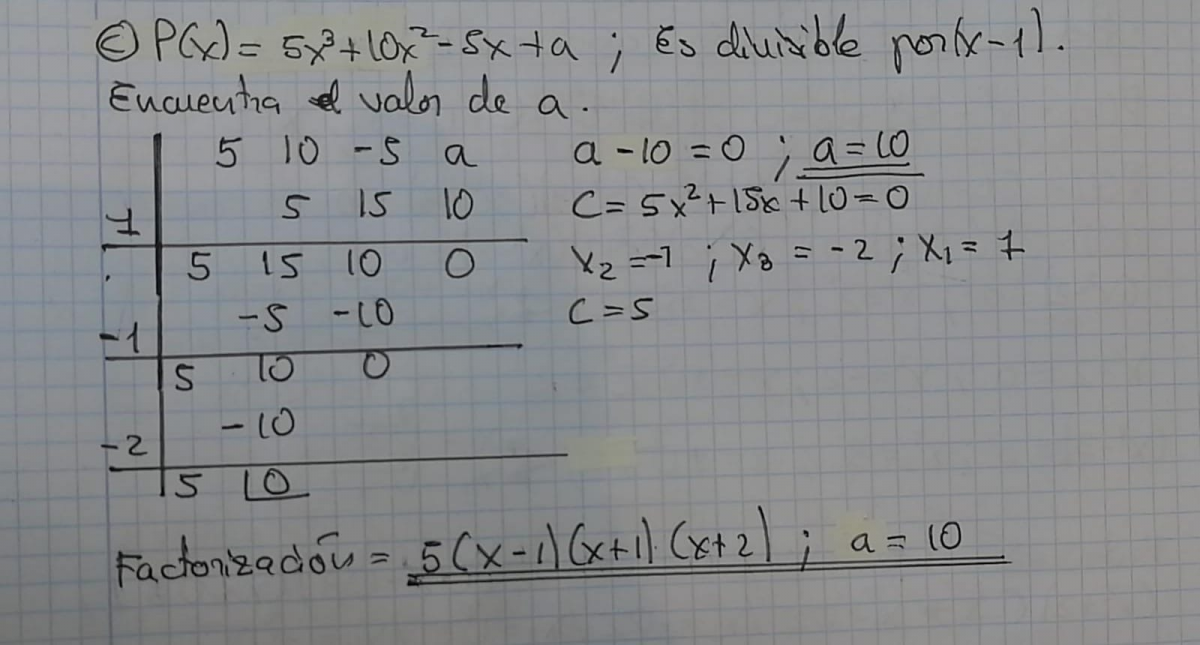 c) P(x) = 5x³+10x²-5x+a ; Es divisible por (x-1).
Encuentra el valor de a.
5 10 -5 a a -10 =0 ; a=10
1 5 15 10 C= 5x²+15x+10=0
5 15 10 0 x₂=-1 ; x₃ = -2 ; x₁= 1
-1 -5 -10 C=5
5 10 0
-2 -10
5 |0
Factorización = 5(x-1)(x+1)·(x+2) ; a= 10